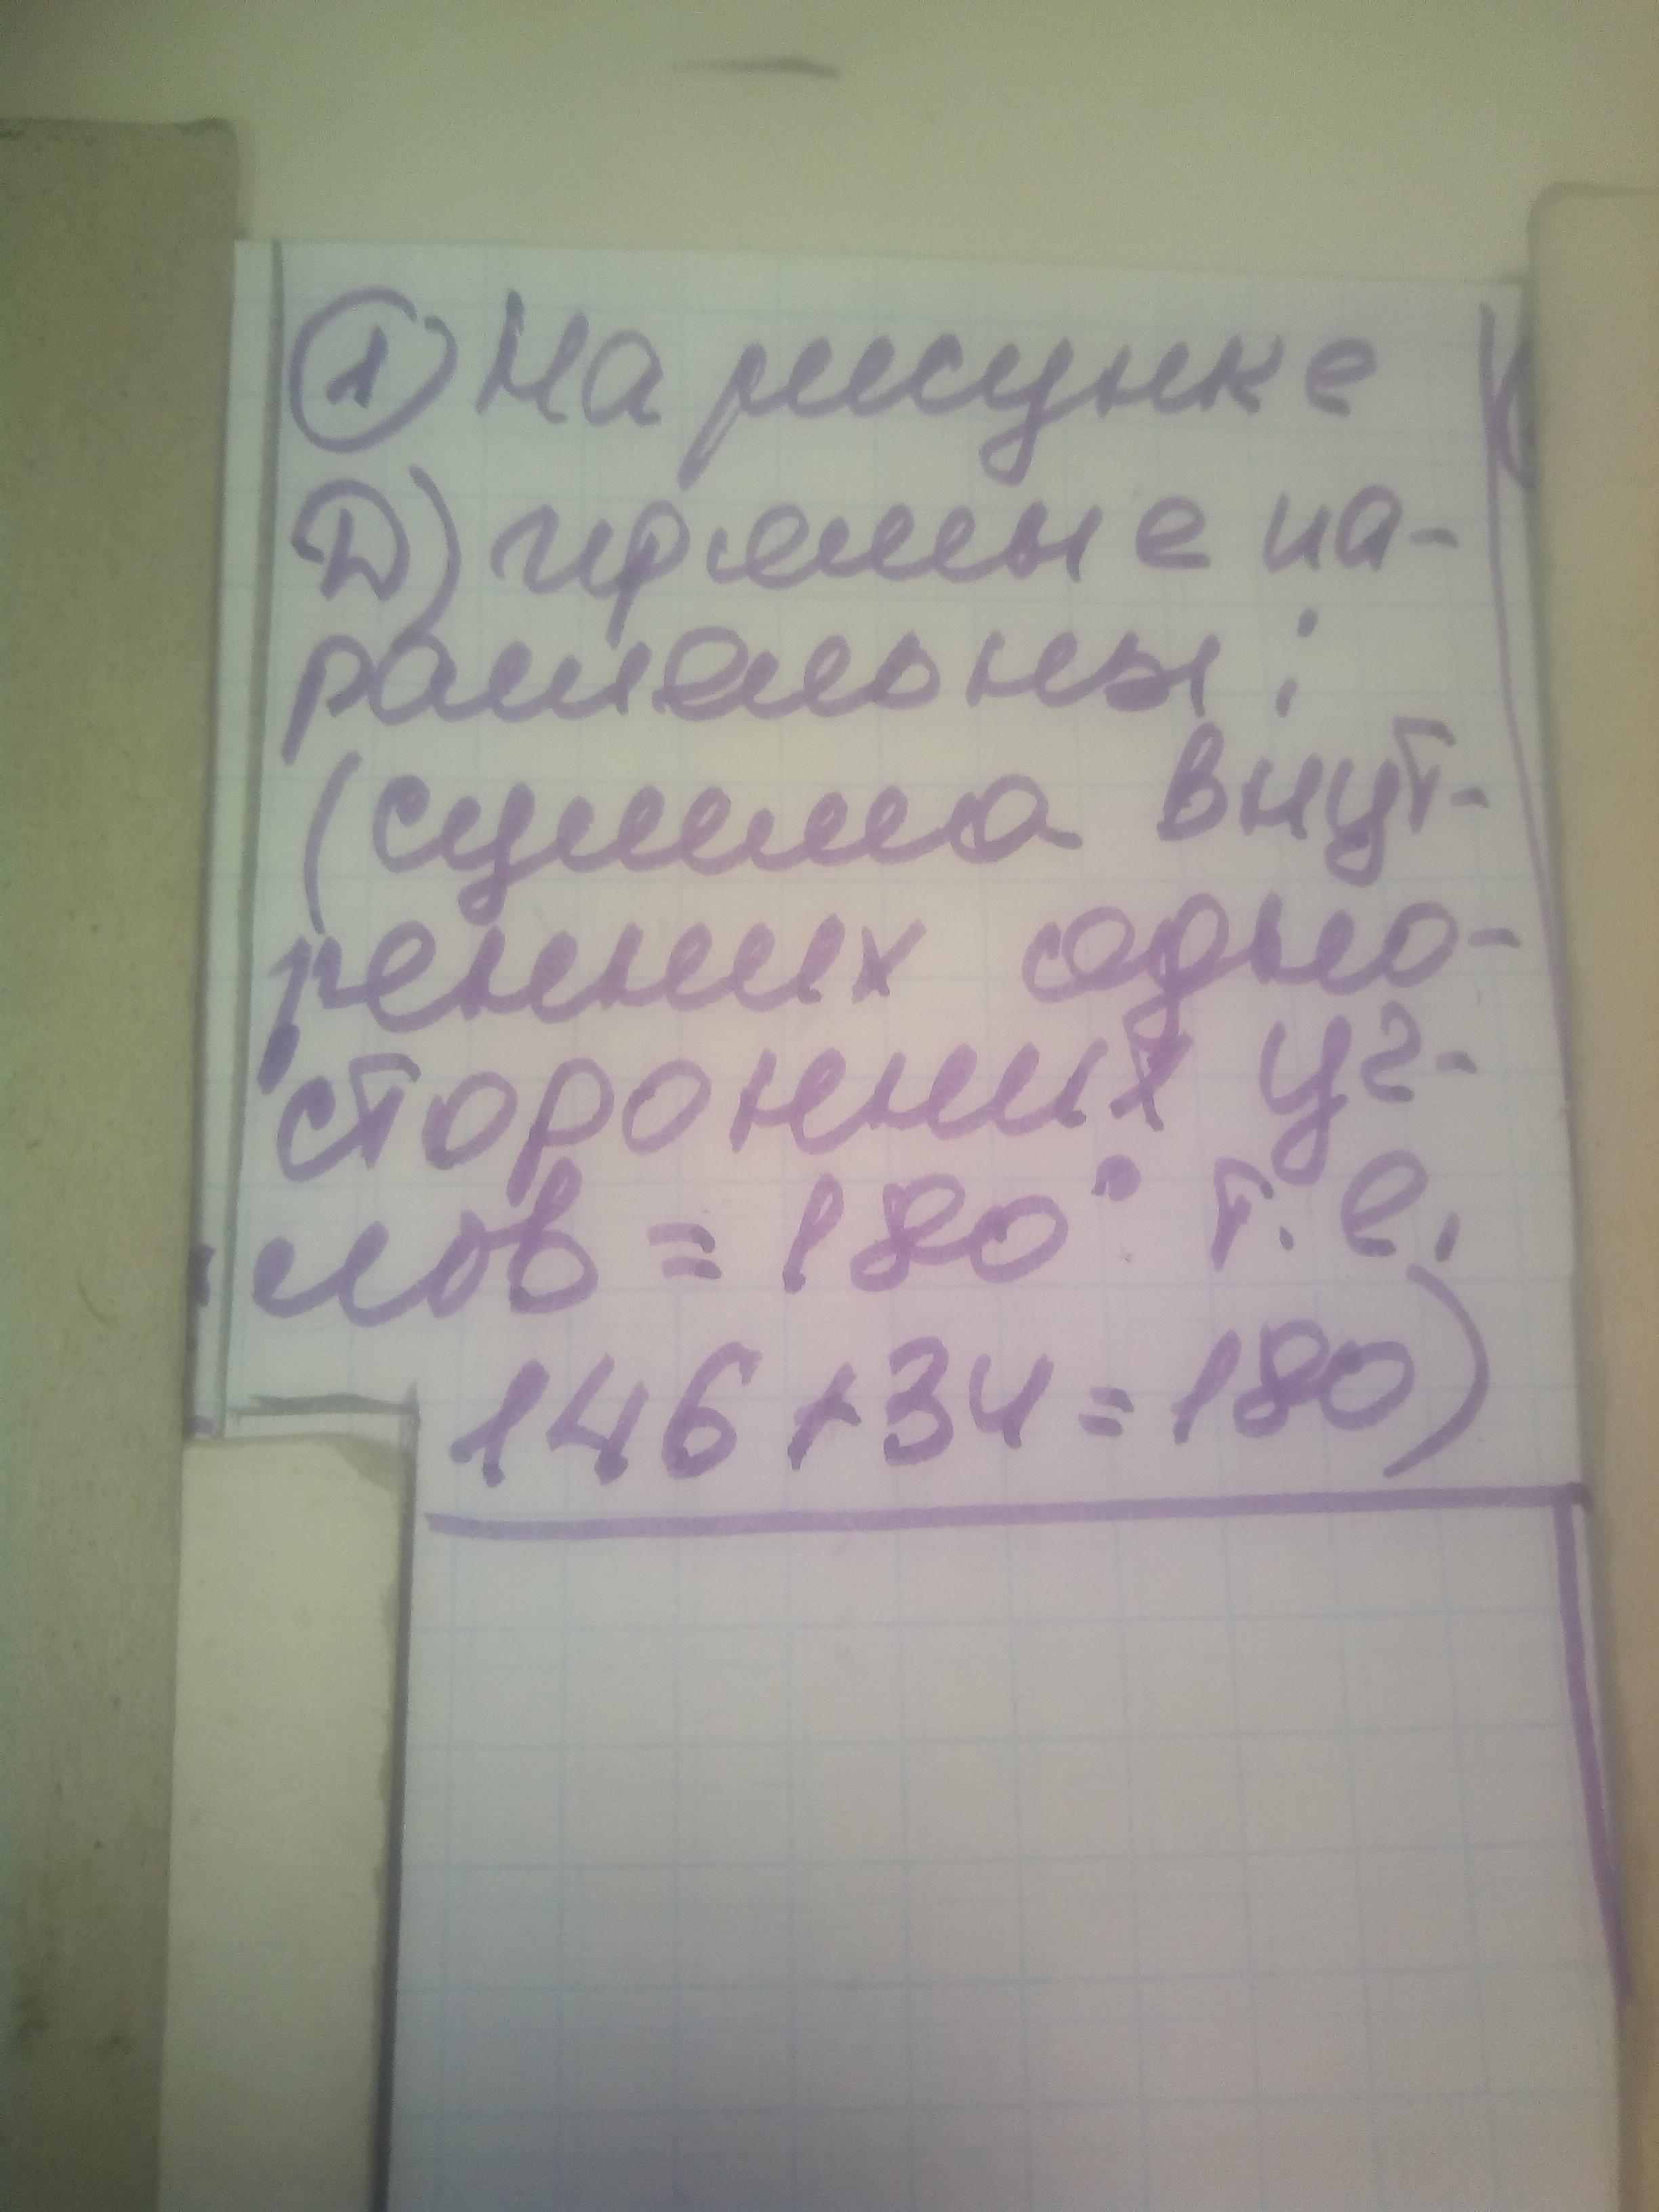 ① На рисунке
D) прямые па-
раллельны:
(сумма внут-
ренних одно-
сторонних уг-
лов = 180° т. е.
146 + 34 = 180)